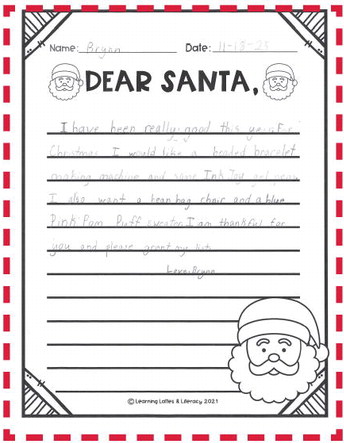 Name: Brynn Date: 11-18-23
DEAR SANTA,
I have been really good this year. For
Christmas I would like a braded bracelet
making machine and some Ink Joy gel pens
I also want a bean bag chair and a blue
Pink Pam Puff sweater. I am thankful for
you and please grant my list.
Love, Brynn
©Learning Lattes & Literacy 2021